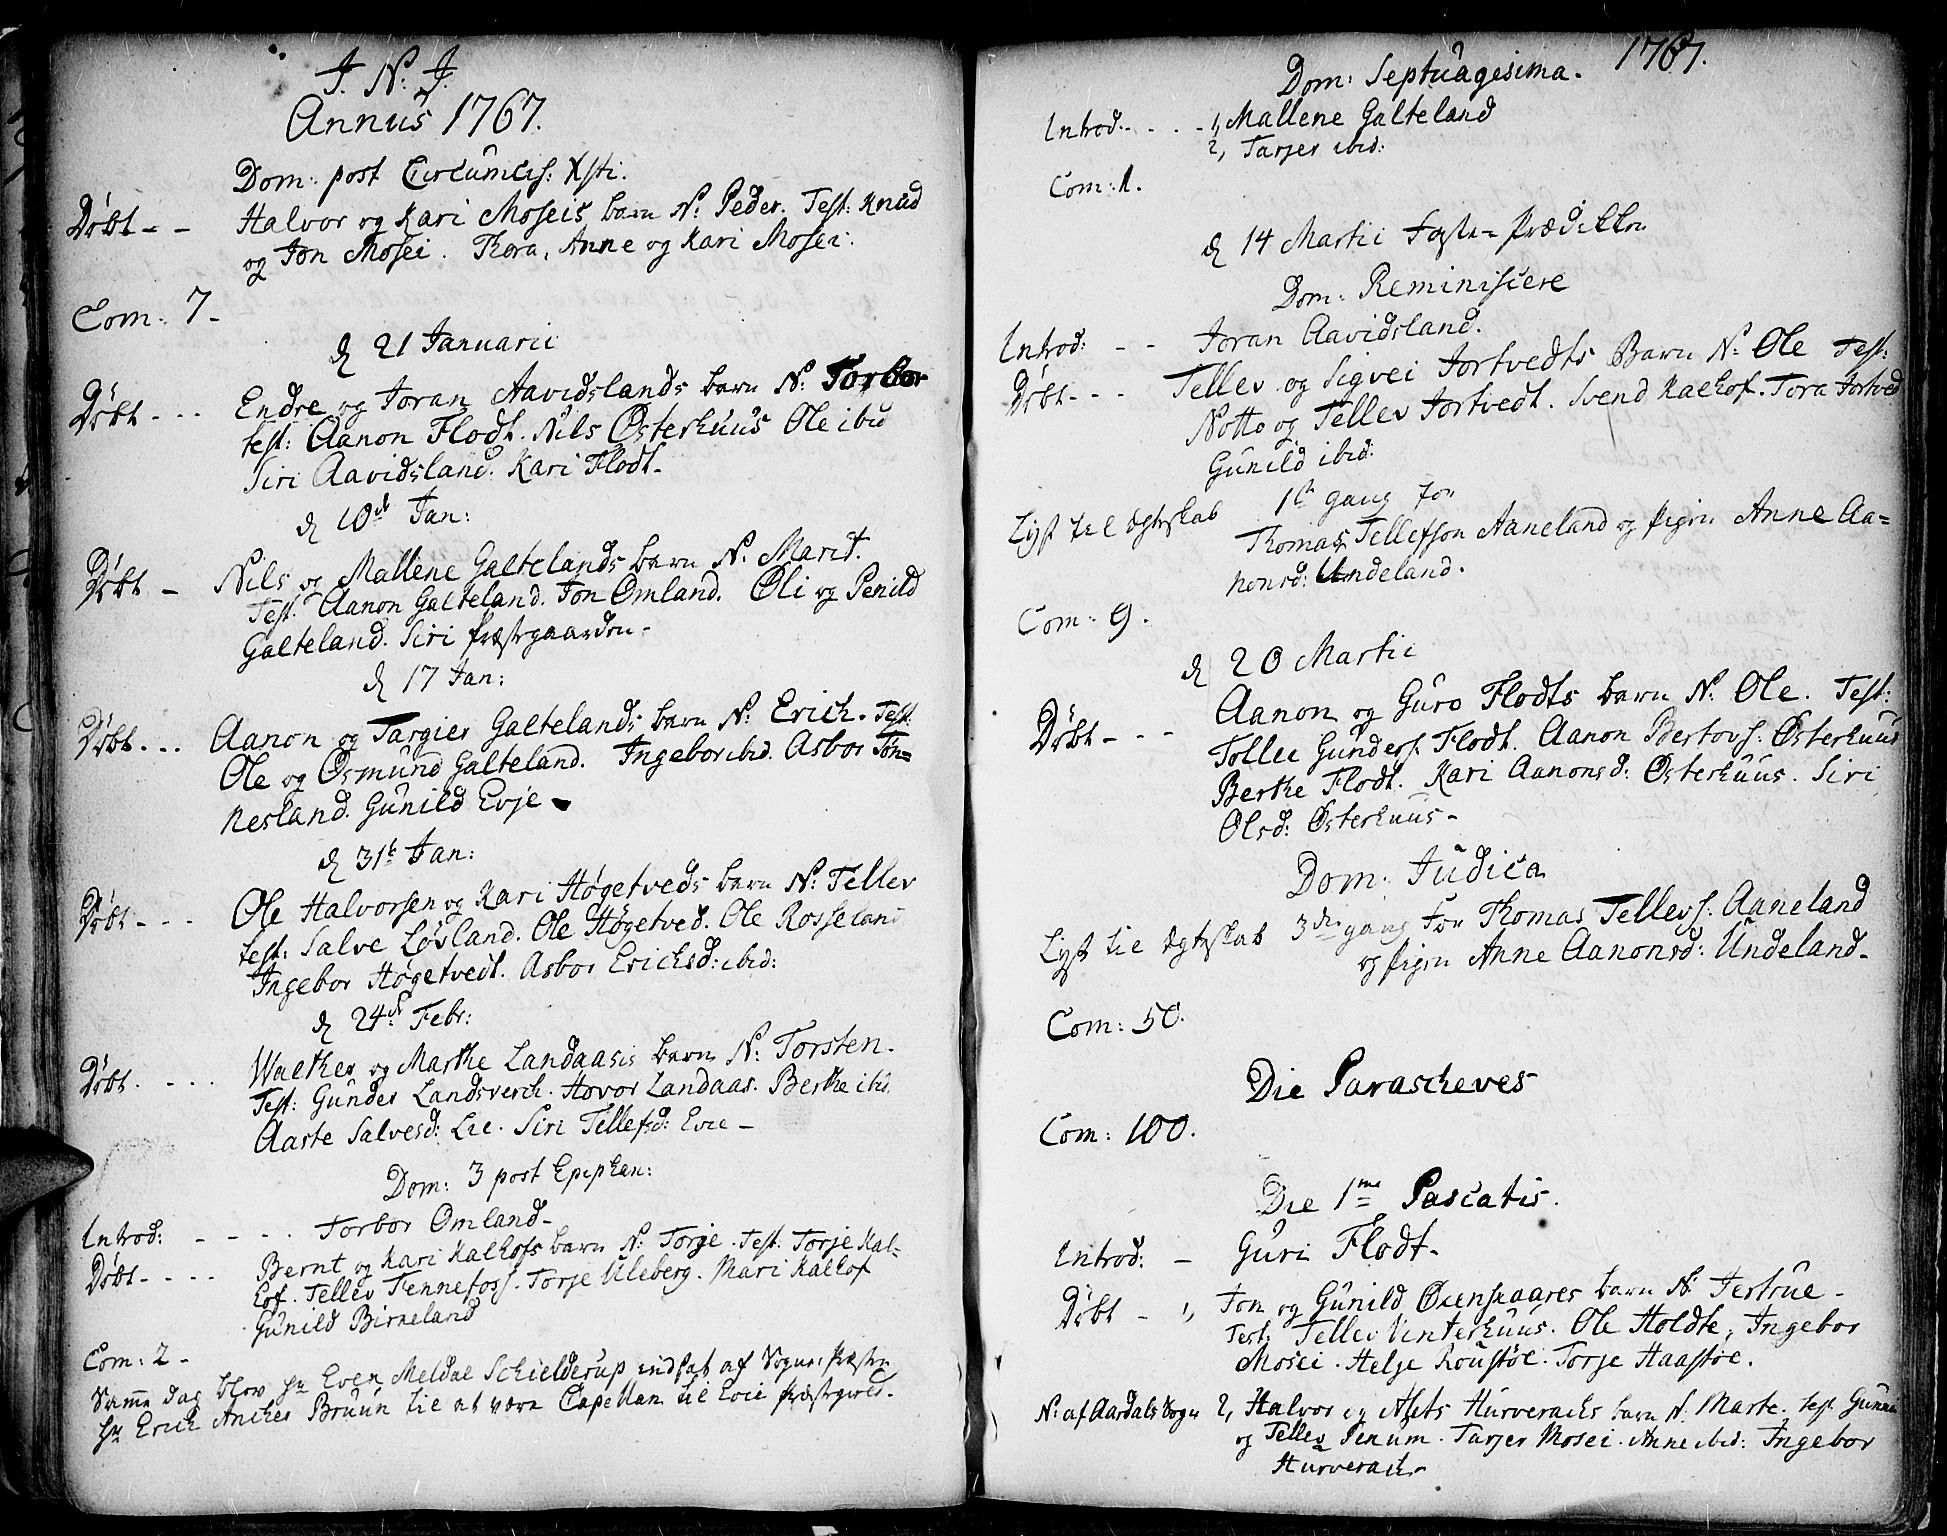 J. N. J.
Annus 1767.
Dom: post Circumcis: Xsti.
Döbt - - Halvor og Kari Moseis barn N: Peder. Test: Knud
og Jon Mosei. Thora, Anne og Kari Mosei.
Com: 7 -
d 21 Januarii
Döbt - - - Endre og Joran Aavidslands barn N: Torbor
test: Aanon Flodt. Nils Østerhuus Ole ibid
Siri Aavidsland. Kari Flodt -
d 10de Jan:
Döbt - Nils og Mallene Galtelands barn N: Marit.
Test. Aanon Galteland. Jon Omland. Oli og Penild
Galteland. Siri Præstegaarden -
d 17 Jan:
Döbt - - - Aanon og Targier Galtelands barn N: Erich. Test.
Ole og Osmund Galteland. Ingebor ibid. Asbor Tön=
nesland. Gunild Evje -
d 31t Jan:
Döbt - - - Ole Halvorsen og Kari Høgetveds barn N: Tellev
test: Salve Løvland. Ole Høgetved. Ole Rosseland
Ingebor Høgetvedt. Asbor Ericksd: ibid:
d 24de Febr:
Döbt - - - - Walther og Marthe Landaasis barn N: Torsten.
Test: Gunder Landsverch. Hovor Landaas. Berthe ibid.
Aaste Salvesd: Lie. Siri Tellefsd: Evie -
Dom: 3 post Epiphan:
Introd: - - - - Torbor Omland -
Döbt - - - - Bernt og Kari Kalhofs barn N: Torje. Test. Torje Kal-
hof. Tellev Fennefoss. Torje Uleberg. Mari Kalhof
Gunild Birkeland
Com: 2 -
Samme dag blev Hr Even Meldal Schielderup indsat af Sogne-Præsten
Hr Erich Ancher Bruun til at være Capellan til Evie Præstegield.
1767.
Dom: Septuagesima.
Introd: - - - - 1, Mallene Galteland
2, Tarjer ibid:
Com: 1.
d 14 Martii Faste-Prædikken
Dom: Reminiscere
Introd: - - Joran Aavidsland.
Döbt - - - Tellev og Sigvei Fortvedts Barn N: Ole Test:
Notto og Tellev Fortvedt. Svend Kalhof. Tora Fortved
Gunild ibid:
Lyst til Egteskab 1ste gang for
Thomas Tellefson Aaneland og pigen Anne Aa=
nonsd: Undeland.
Com: 9.
d 20 Martii
Döbt - - - Aanon og Guro Flodts barn N: Ole. Test:
Tollei Gunders. Flodt. Aanon Bertovs. Østerhuus
Berthe Flodt. Kari Aanonsd: Østerhuus. Siri
Olsd: Østerhuus -
Dom: Judica
Lyst til Egteskab 3die gang for Thomas Tellevs. Aaneland
og pigen Anne Aanonsd: Undeland -
Com: 50.
Die Parascheves
Com: 100.
Die 1me Pascatis.
Introd: - Guri Flodt -
Döbt - 1, Jon og Gunild Øienskaares barn N: Jertrue -
Test: Tellev Vinterhuus. Ole Holdte, Ingebor
Mosei. Helje Roustøe. Torje Haastøe.
N: af Aardals Sogn 2, Halvor og Alets Hurverachs barn N. Marte. test Gunne
og Tellev Senum. Tarjer Mosei. Anne ibid: Ingebor
Hurverach -